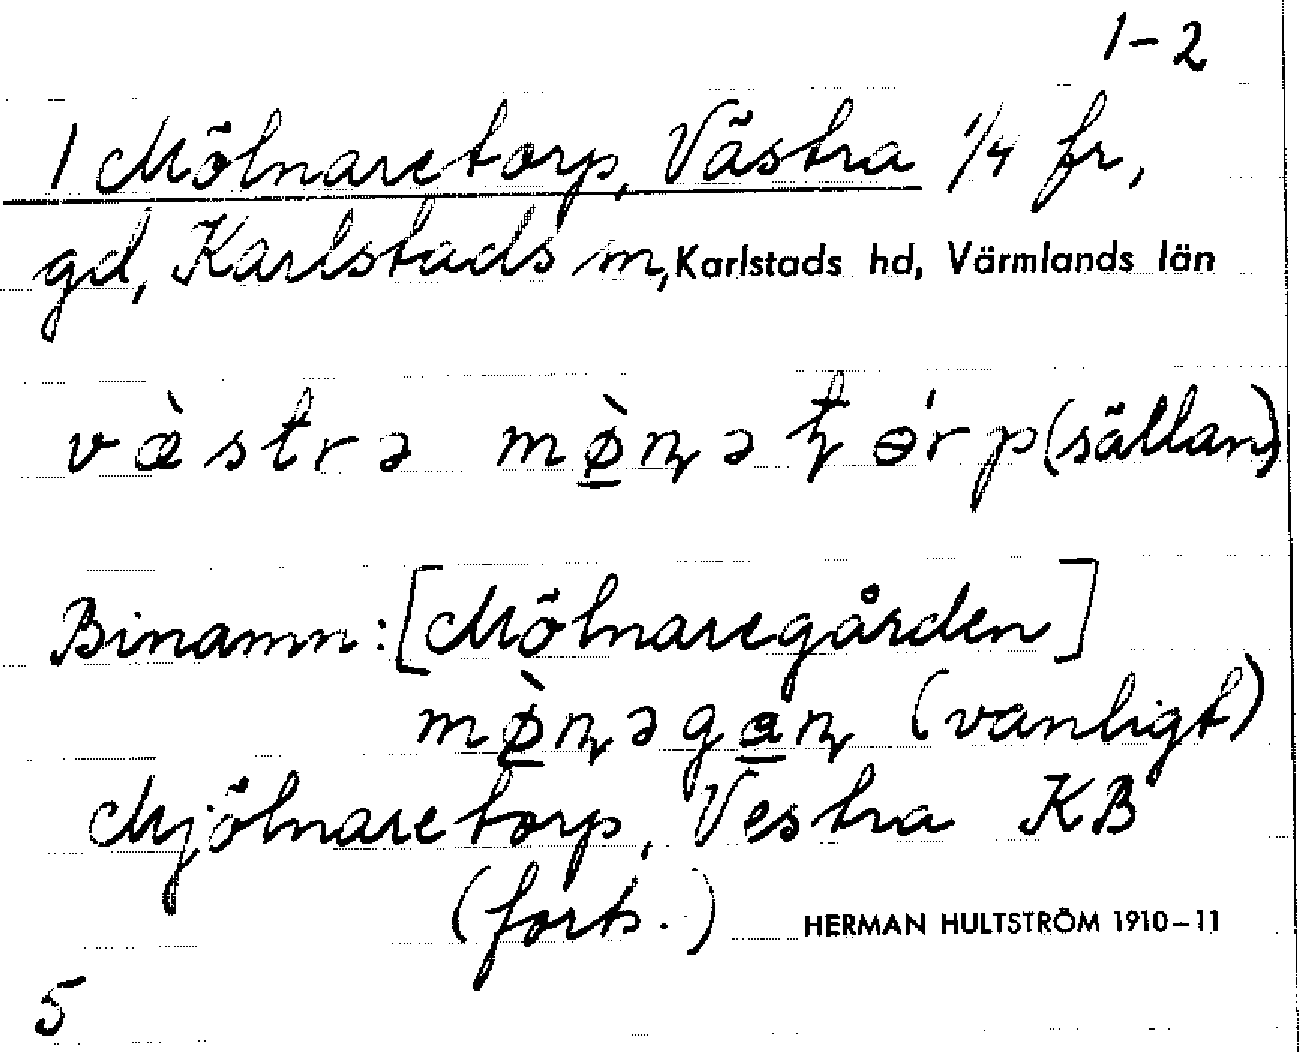 1-2
1 Mölnaretorp, Västra 1/4 fr,
gd, Karlstads m, Karlstads hd, Värmlands län
væ̀strə mø̠̀ɳəʈɵ́rp (sällan)
Binamn: [Mölnaregården]
mø̠̀ɳəga̠ɳ (vanligt)
Mjölnaretorp, Vestra KB
(forts.)
HERMAN HULTSTRÖM 1910-11
5